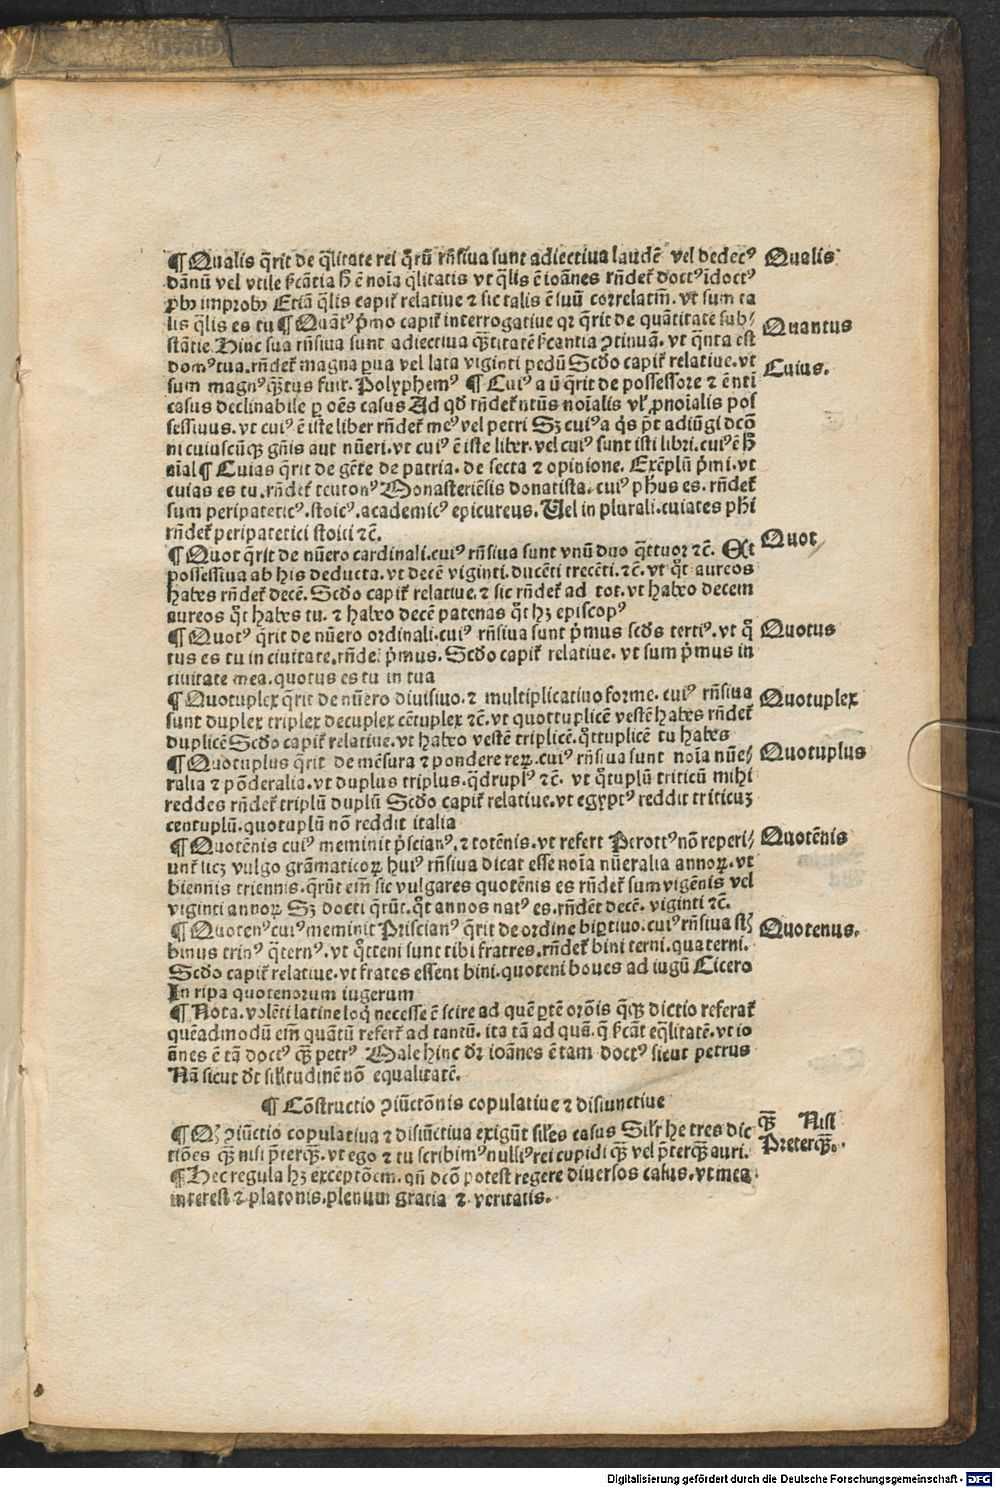 ¶ Qualis q̄rit de q̄litate rei q̄rū rn̄siua sunt adiectiua laudē vel dedecꝰ Qualis
dānū vel vtile ſcātia hͦ ē noīa q̄litatis vt q̄lis ē ioānes rn̄det᷑ doctꝰ īdoctꝰ
ꝓbꝰ improbꝰ Etiā q̄lis capit᷑ relatiue ⁊ sic talis ē suū correlatiuū. vt sum ta
lis q̄lis es tu ¶ Quātꝰ pͥmo capit᷑ interrogatiue qꝛ q̄rit de quātitate sub⸗ Quantus
stātie. Hinc sua rn̄siua sunt adiectiua q̄ꝫtitatē ſcantia ꝯtinuā. vt q̄nta est
domꝰ tua. rn̄det᷑ magna ꝑua vel lata viginti pedū Scd̄o capit᷑ relatiue. vt Cuius.
sum magnꝰ q̄ꝫtus fuit. Polyphemꝰ ¶ Cuiꝰ a ū q̄rit de possessore ⁊ ē nti
casus declinabile ꝑ oēs casus Ad qd̄ rn̄det᷑ ntūs noīalis vl᷑ ꝓnoīalis pos
sessiuus. vt cuiꝰ ē iste liber rn̄det᷑ meꝰ vel petri Sꝫ cuiꝰ a q̄s pt̄ adiūgi dcō
ni cuiuscūqꝫ gn̄is aut nūeri. vt cuiꝰ ē iste liber. vel cuiꝰ sunt isti libri. cuiꝰ ē hͦ
aīal ¶ Cuias q̄rit de gēte de patria. de secta ⁊ opinione. Exēplū pͥmi. vt
cuias es tu. rn̄det᷑ teutonꝰ Monasteriēsis donatista. cuiꝰ phūs es. rn̄det᷑
sum peripateticꝰ. stoicꝰ. academicꝰ epicureus. Uel in plurali. cuiates phī
rn̄det᷑ peripatetici stoici ⁊c̄.
¶ Quot q̄rit de nūero cardinali. cuiꝰ rn̄siua sunt vnū duo q̄ttuor ⁊c̄. Et Quot
possessiua ab his deducta. vt decē viginti. ducēti trecēti. ⁊c̄. vt qͦt aureos
habes rn̄det᷑ decē. Scd̄o capit᷑ relatiue. ⁊ sic rn̄det᷑ ad tot. vt habeo decem
aureos qͦt habes tu. ⁊ habeo decē patenas qͦt hꝫ episcopꝰ
¶ Quotꝰ q̄rit de nūero ordinali. cuiꝰ rn̄siua sunt pͥmus scd̄s tertiꝰ. vt qͦ Quotus
tus es tu in ciuitate. rn̄de. pͥmus. Scd̄o capit᷑ relatiue. vt sum pͥmus in
ciuitate mea. quotus es tu in tua
¶ Quotuplex q̄rit de nūero diuisiuo. ⁊ multiplicatiuo forme. cuiꝰ rn̄siua Quotuplex
sunt duplex triplex decuplex cētuplex ⁊c̄. vt quottuplicē vestē habes rn̄det᷑
duplicē Scd̄o capit᷑ relatiue. vt habeo vestē triplicē. qͦttuplicē tu habes
¶ Quotuplus q̄rit de mēsura ⁊ pondere reꝝ. cuiꝰ rn̄siua sunt noīa nūe⸗ Quotuplus
ralia ⁊ pōderalia. vt duplus triplus. q̄druplꝰ ⁊c̄. vt qͦtuplū triticū mihi
reddes rn̄det᷑ triplū duplū Scd̄o capit᷑ relatiue. vt egyptꝰ reddit triticuꝫ
centuplū. quotuplū nō reddit italia
¶ Quotēnis cuiꝰ meminit pͥscianꝰ. ⁊ totēnis. vt refert Perottꝰ nō reperi⸗ Quotēnis
unt᷑ licꝫ vulgo grāmaticoꝝ huiꝰ rn̄siua dicat esse noīa nūeralia annoꝝ. vt
biennis triennis. q̄rūt em̄ sic vulgares quotēnis es rn̄det᷑ sum vigēnis vel
viginti annoꝝ Sꝫ docti q̄rūt. qͦt annos natꝰ es. rn̄dēt decē. viginti ⁊c̄.
¶ Quotenꝰ cuiꝰ meminit Priscianꝰ q̄rit de ordine biꝑtiuo. cuiꝰ rn̄siua st̄ Quotenus.
binus trinꝰ q̄ternꝰ. vt qͦtteni sunt tibi fratres. rn̄det᷑ bini terni. quaterni.
Scd̄o capit᷑ relatiue. vt frates essent bini. quoteni boues ad iugū Cicero
In ripa quotenorum iugerum
¶ Nota. volēti latine loqͥ necesse ē scire ad quē ꝑtē orōnis q̄qꝫ dictio referat᷑
quēadmodū em̄ quātū refert᷑ ad tantū. ita tā ad quā. q̄ ſcāt eq̄litatē. vt io
ānes ē tā doctꝰ q̄ꝫ petrꝰ Male hinc dr̄ ioānes ē tam doctꝰ sicut petrus
Nā sicut dt̄ sil̄itudinē nō equalitatē.
¶ Cōstructio ꝯiūctōnis copulatiue ⁊ disiunctiue
¶ Oꝫ ꝯiūctio copulatiua ⁊ disiūctiua exigūt sil̄es casus Sil̄r he tres dic q̄ꝫ Nisi
tiōes q̄ꝫ nisi pͥterq̄ꝫ. vt ego ⁊ tu scribimꝰ nulliꝰ rei cupidi q̄ꝫ vel pͥterq̄ꝫ auri. Preterq̄ꝫ.
¶ Hec regula hꝫ exceptōem. qn̄ dcō potest regere diuersos casus. vt mea
interest ⁊ platonis. plenum gratia ⁊ veritatis.
Digitalisierung gefördert durch die Deutsche Forschungsgemeinschaft - DFG